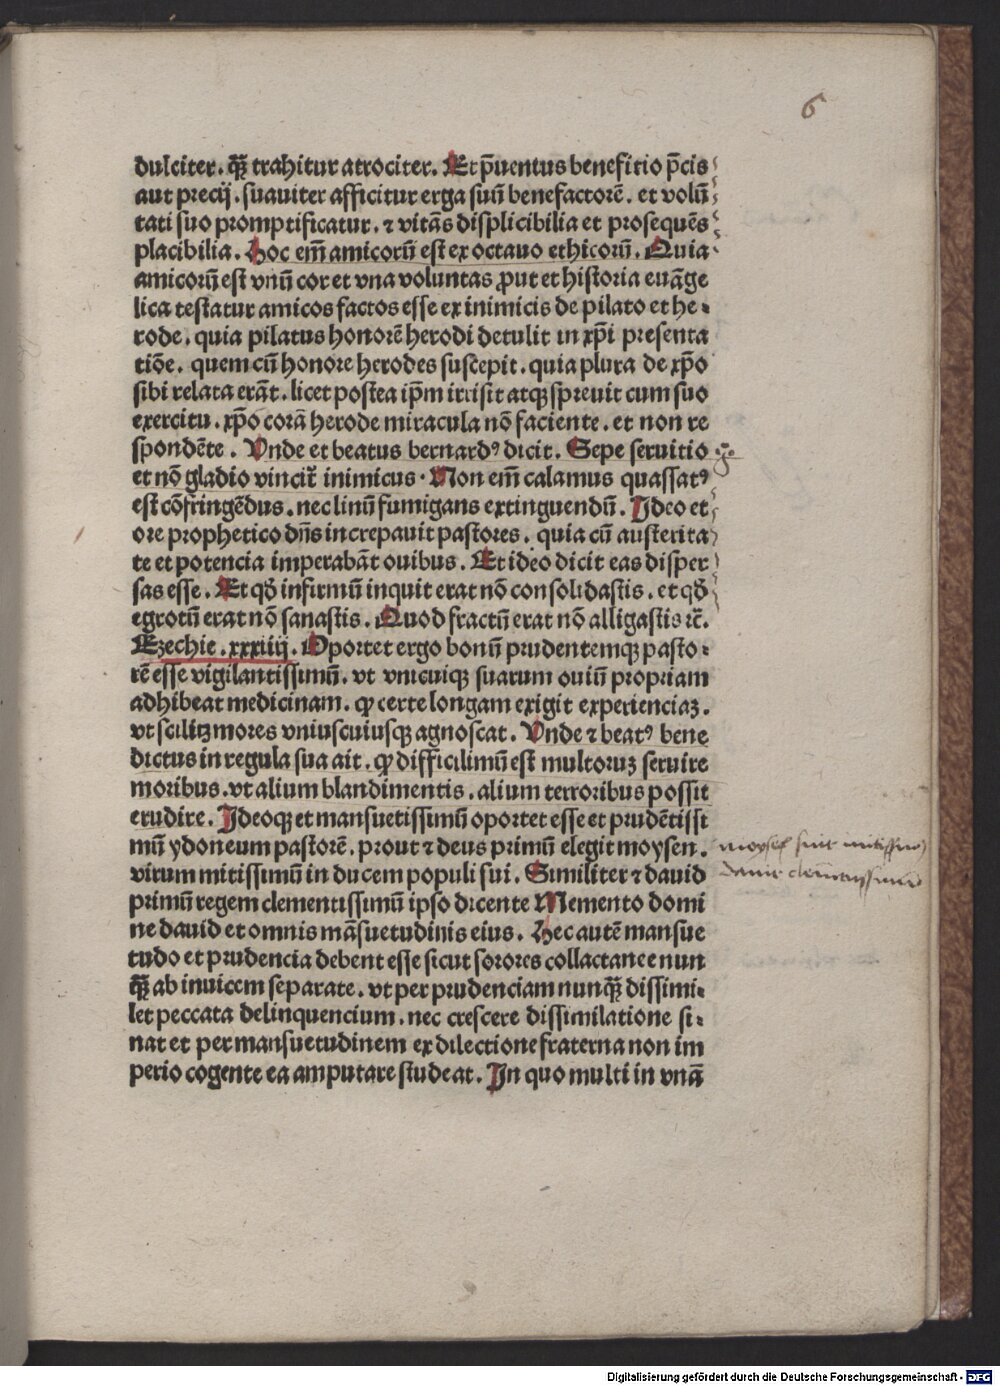 6
dulciter. qꝫ̄ trahitur atrociter. Et p̄uentus benefitio p̄cis
aut precij. suauiter afficitur erga suū benefactorē. et volū
tati suo promptificatur. ⁊ vitās displicibilia et prosequēs
placibilia. Hoc em̄ amicorū est ex octauo ethicorū. Quia
amicorū est vnū cor et vna voluntas ꝓut et historia euāge
lica testatur amicos factos esse ex inimicis de pilato et he⸗
rode. quia pilatus honorē herodi detulit in xp̄i presenta
tiōe. quem cū honore herodes suscepit. quia plura de xp̄o
sibi relata erāt. licet postea ip̄m irrisit atqꝫ spreuit cum suo
exercitu. xp̄o corā herode miracula nō faciente. et non re
spondēte. Vnde et beatus bernardꝰ dicit. Sepe seruitio
et nō gladio vincit̄ inimicus. Non em̄ calamus quassatꝰ
est cōfringēdus. nec linū fumigans extinguendū. Ideo et
ore prophetico dn̄s increpauit pastores. quia cū austerita
te et potencia imperabāt ouibus. Et ideo dicit eas disper
sas esse. Et qđ infirmū inquit erat nō consolidastis. et qđ
egrotū erat nō sanastis. Quod fractū erat nō alligastis ⁊c̄.
Ezechie. xxxiiij. Oportet ergo bonū prudentemqꝫ pasto⸗
rē esse vigilantissimū. vt vnicuiqꝫ suarum ouiū propriam
adhibeat medicinam. ꝙ certe longam exigit experienciaꝫ.
vt scilitꝫ mores vniuscuiusqꝫ agnoscat. Vnde ⁊ beatꝰ bene
dictus in regula sua ait. ꝙ difficilimū est multoruꝫ seruire
moribus. vt alium blandimentis. alium terroribus possit
erudire. Ideoqꝫ et mansuetissimū oportet esse et prudētissi
mū ydoneum pastorē. prout ⁊ deus primū elegit moysen.
virum mitissimū in ducem populi sui. Similiter ⁊ dauid
primū regem clementissimū ipso dicente Memento domi
ne dauid et omnis māsuetudinis eius. Hec autē mansue
tudo et prudencia debent esse sicut sorores collactanee nun
qꝫ̄ ab inuicem separate. vt per prudenciam nunqꝫ̄ dissimi⸗
let peccata delinquencium. nec crescere dissimilatione si⸗
nat et per mansuetudinem ex dilectione fraterna non im
perio cogente ea amputare studeat. In quo multi in vnā
moyses fuit mitissimus
dauid clementissimus
Digitalisierung gefördert durch die Deutsche Forschungsgemeinschaft - DFG